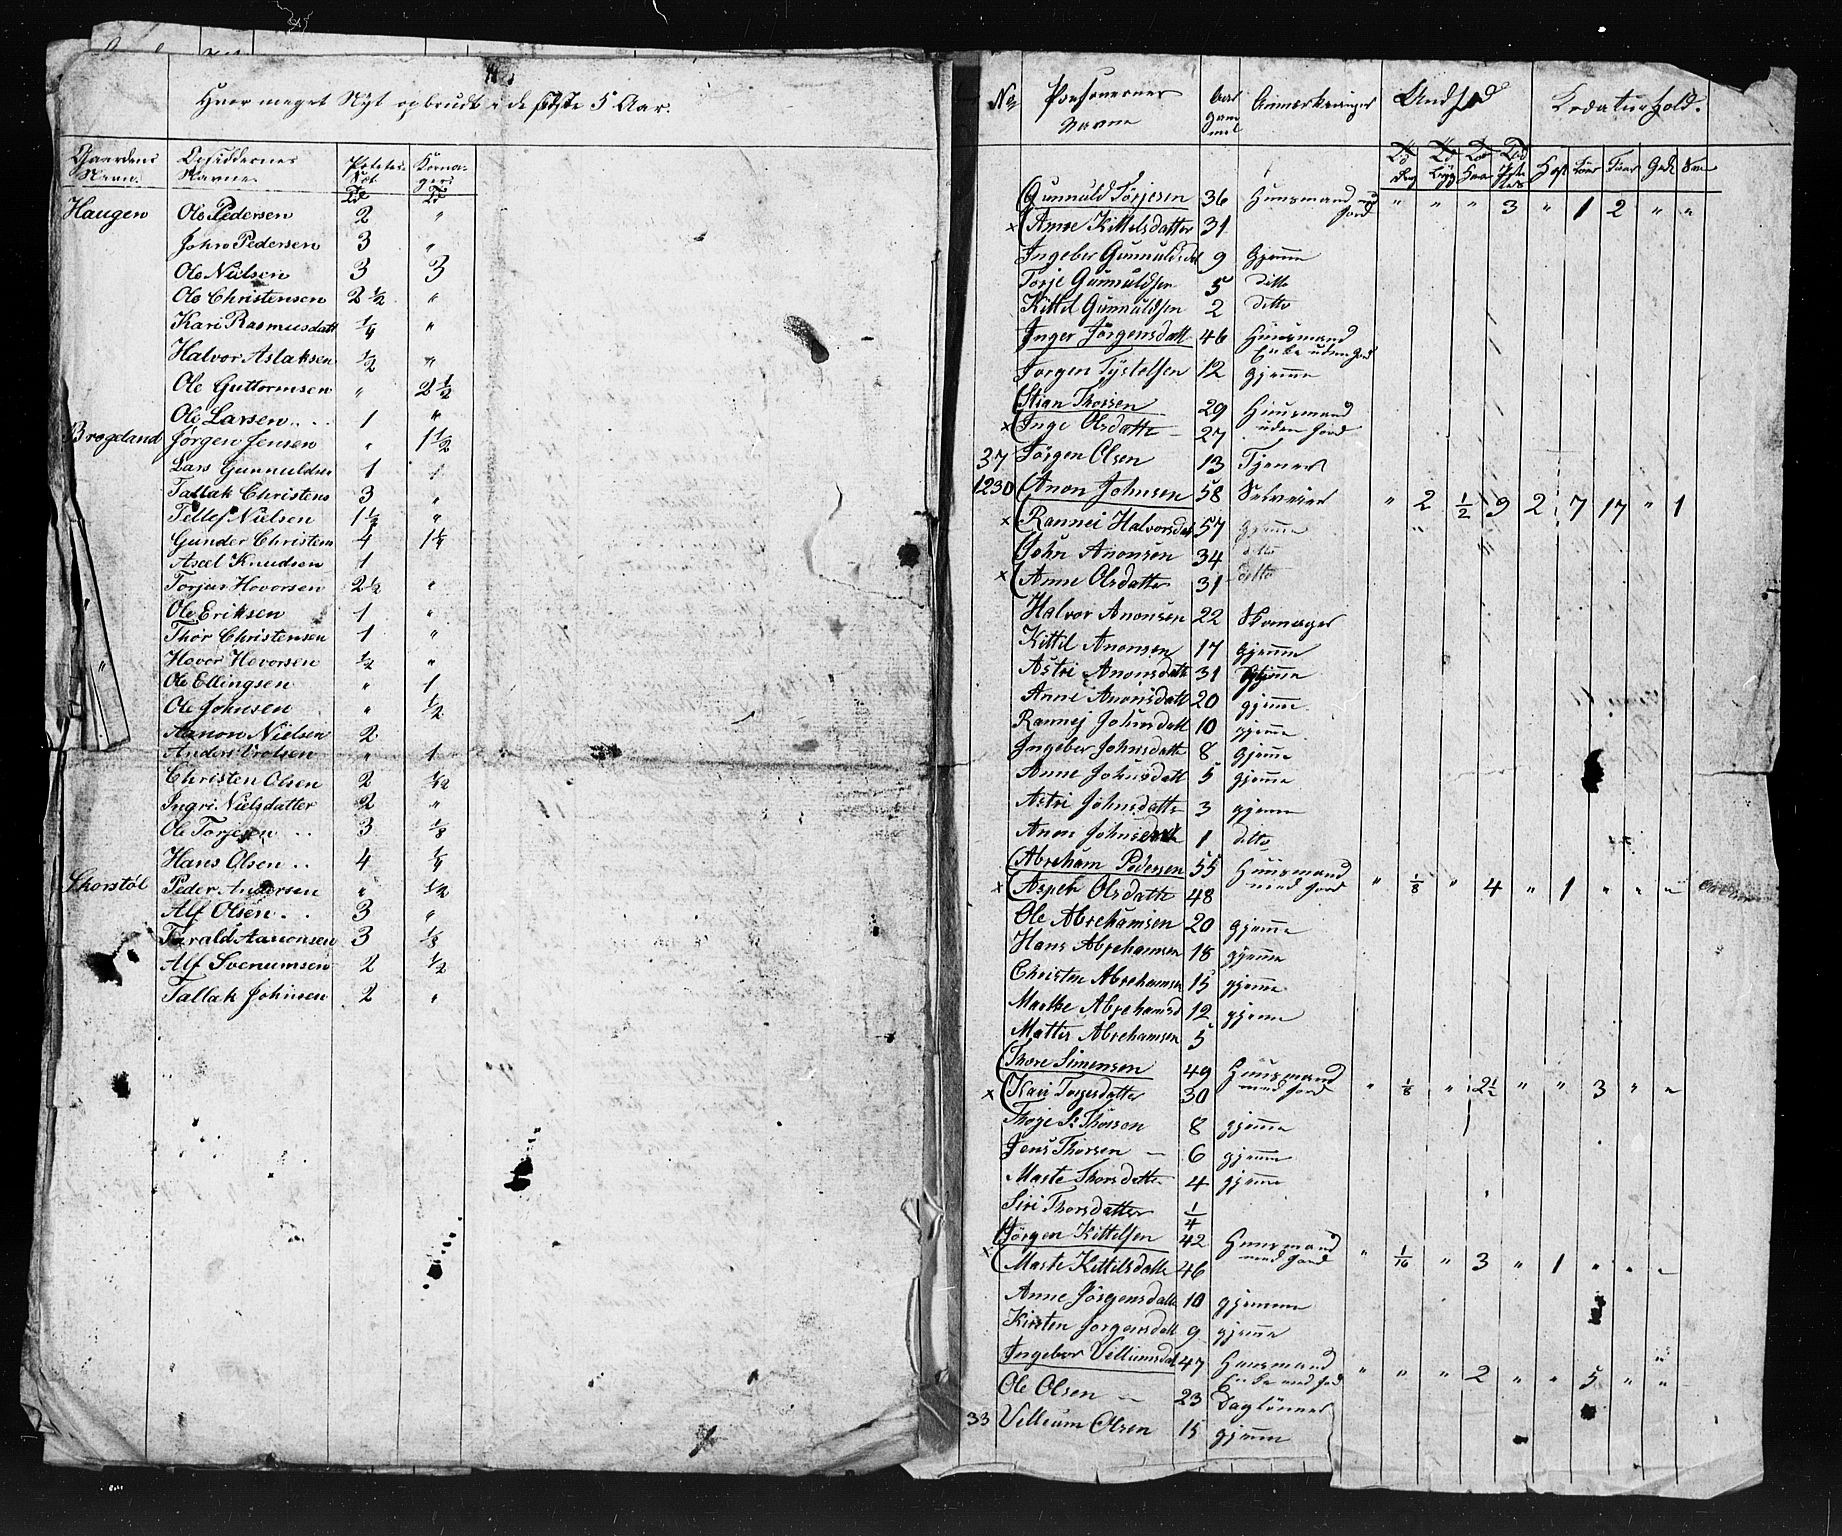 Hvor meget Nyt opbrudt i de sidste 5 Aar.
Gaardens Navn. Besiddernes Navne. Td Td
Haugen Ole Pedersen 2 "
John Pedersen 3 "
Ole Nielsen 3 3
Ole Christensen 2 1/2 "
Kari Rasmusdatt 1/4 "
Halvor Aslaksen 1/2 "
Ole Guttormsen " 2 1/2
Ole Larsen.. .. 1 "
Brogeland Jørgen Jensen " 1 1/2
Lars Gunnuldsen 1 1
Tallak Christens 3 "
Tellef Nielsen 1 1/2 "
Gunder Christens 4 1 1/4
Axel Knudsen 1
Torjus Hovorsen 2 1/2 "
Ole Eriksen 1 "
Thor Christensen 1 "
Hovor Hovorsen 1/2 "
Ole Ellingsen " 1
Ole Johnsen " 1/2
Aanon Nielsen 2
Anders Vrolsen " 1
Christen Olsen 2 1/2
Ingri Nielsdatter 2 "
Ole Torjesen .. 3 1/8
Hans Olsen .. 4 1/4
Skorstøl Peder Andersen " 1/2
Alf Olsen. . 3 "
Tarald Aanonsen 3 1/3
Alf Svenumsen 2 1/2
Tallak Johnsen 2 "
No Personernes Navne Aar gammel Anmerkninger Udsæd Kreaturhold.
Gunnuld Torjesen 36 Huusmand med Jord " " " 3 " 1 2 " "
x Anne Kittelsdatter 31
Ingebor Gunnuldsdat 9 gjemme
Torje Gunnuldsen 5 ditto
Kittil Gunnuldsen 2 ditto
Inger Jörgensdatt 46 Huusmand Enke uden Jord
Jorgen Tystelsen 12 gjemme
Stian Thorsen 29 Huusmand uden Jord
x Inge Olsdatte – 27
37 Jørgen Olsen 13 Tjener
1230 Anon Johnsen 58 Selveier " 2 1/2 9 2 7 17 " 1
x Rannei Halvorsdat 57 gjemme
John Anonsen 34 ditto
x Anne Olsdatter 31 ditto
Halvor Anonsen 22 Skomager
Kittil Anonsen 17 gjemme
Astri Anonsdatt 31 gjemme
Anne Anonsdatt 20 gjemme
Rannej Johnsdatt 10 gjemme
Ingebor Johnsdatte 8 gjemme
Anne Johnsdatt 5 gjemme
Astri Johnsdatte 3 gjemme
Anon Johnsen 1 ditto
Abreham Pedersen 55 Huusmand med Jord " 1/8 " 4 " 1 " " "
x Asper Olsdatte 48
Ole Abrehamsen 20 gjemme
Hans Abrehamsen 18 gjemme
Christen Abrehamsen 15 gjemme
Marthe Abrehamsd 12 gjemme
Matter Abrehamsen 5
Thore Simensen 49 Huusmand med Jord " 1/8 " 2 1/2 " " 3 " "
x Kari Torjesdatte 30
Thoje S: Thorsen 8 gjemme
Jens Thorsen – 6 gjemme
Marte Thorsdatte 4 gjemme
Siri Thorsdatter 1/4
Jörgen Kittelsen 42 Huusmand med Jord " 1/16 " 3 " 1 " " "
x Marte Kittelsdatte 46
Anne Jörgensdatt 10 gjemme
Kirsten Jorgensdatt 9 gjemme
Ingebor Villiumsdat 47 Huusmand Enke med Jord " " " 2 " " 5 " "
Ole Olsen – 23 Daglönner
33 Villium Olsen 15 gjemme